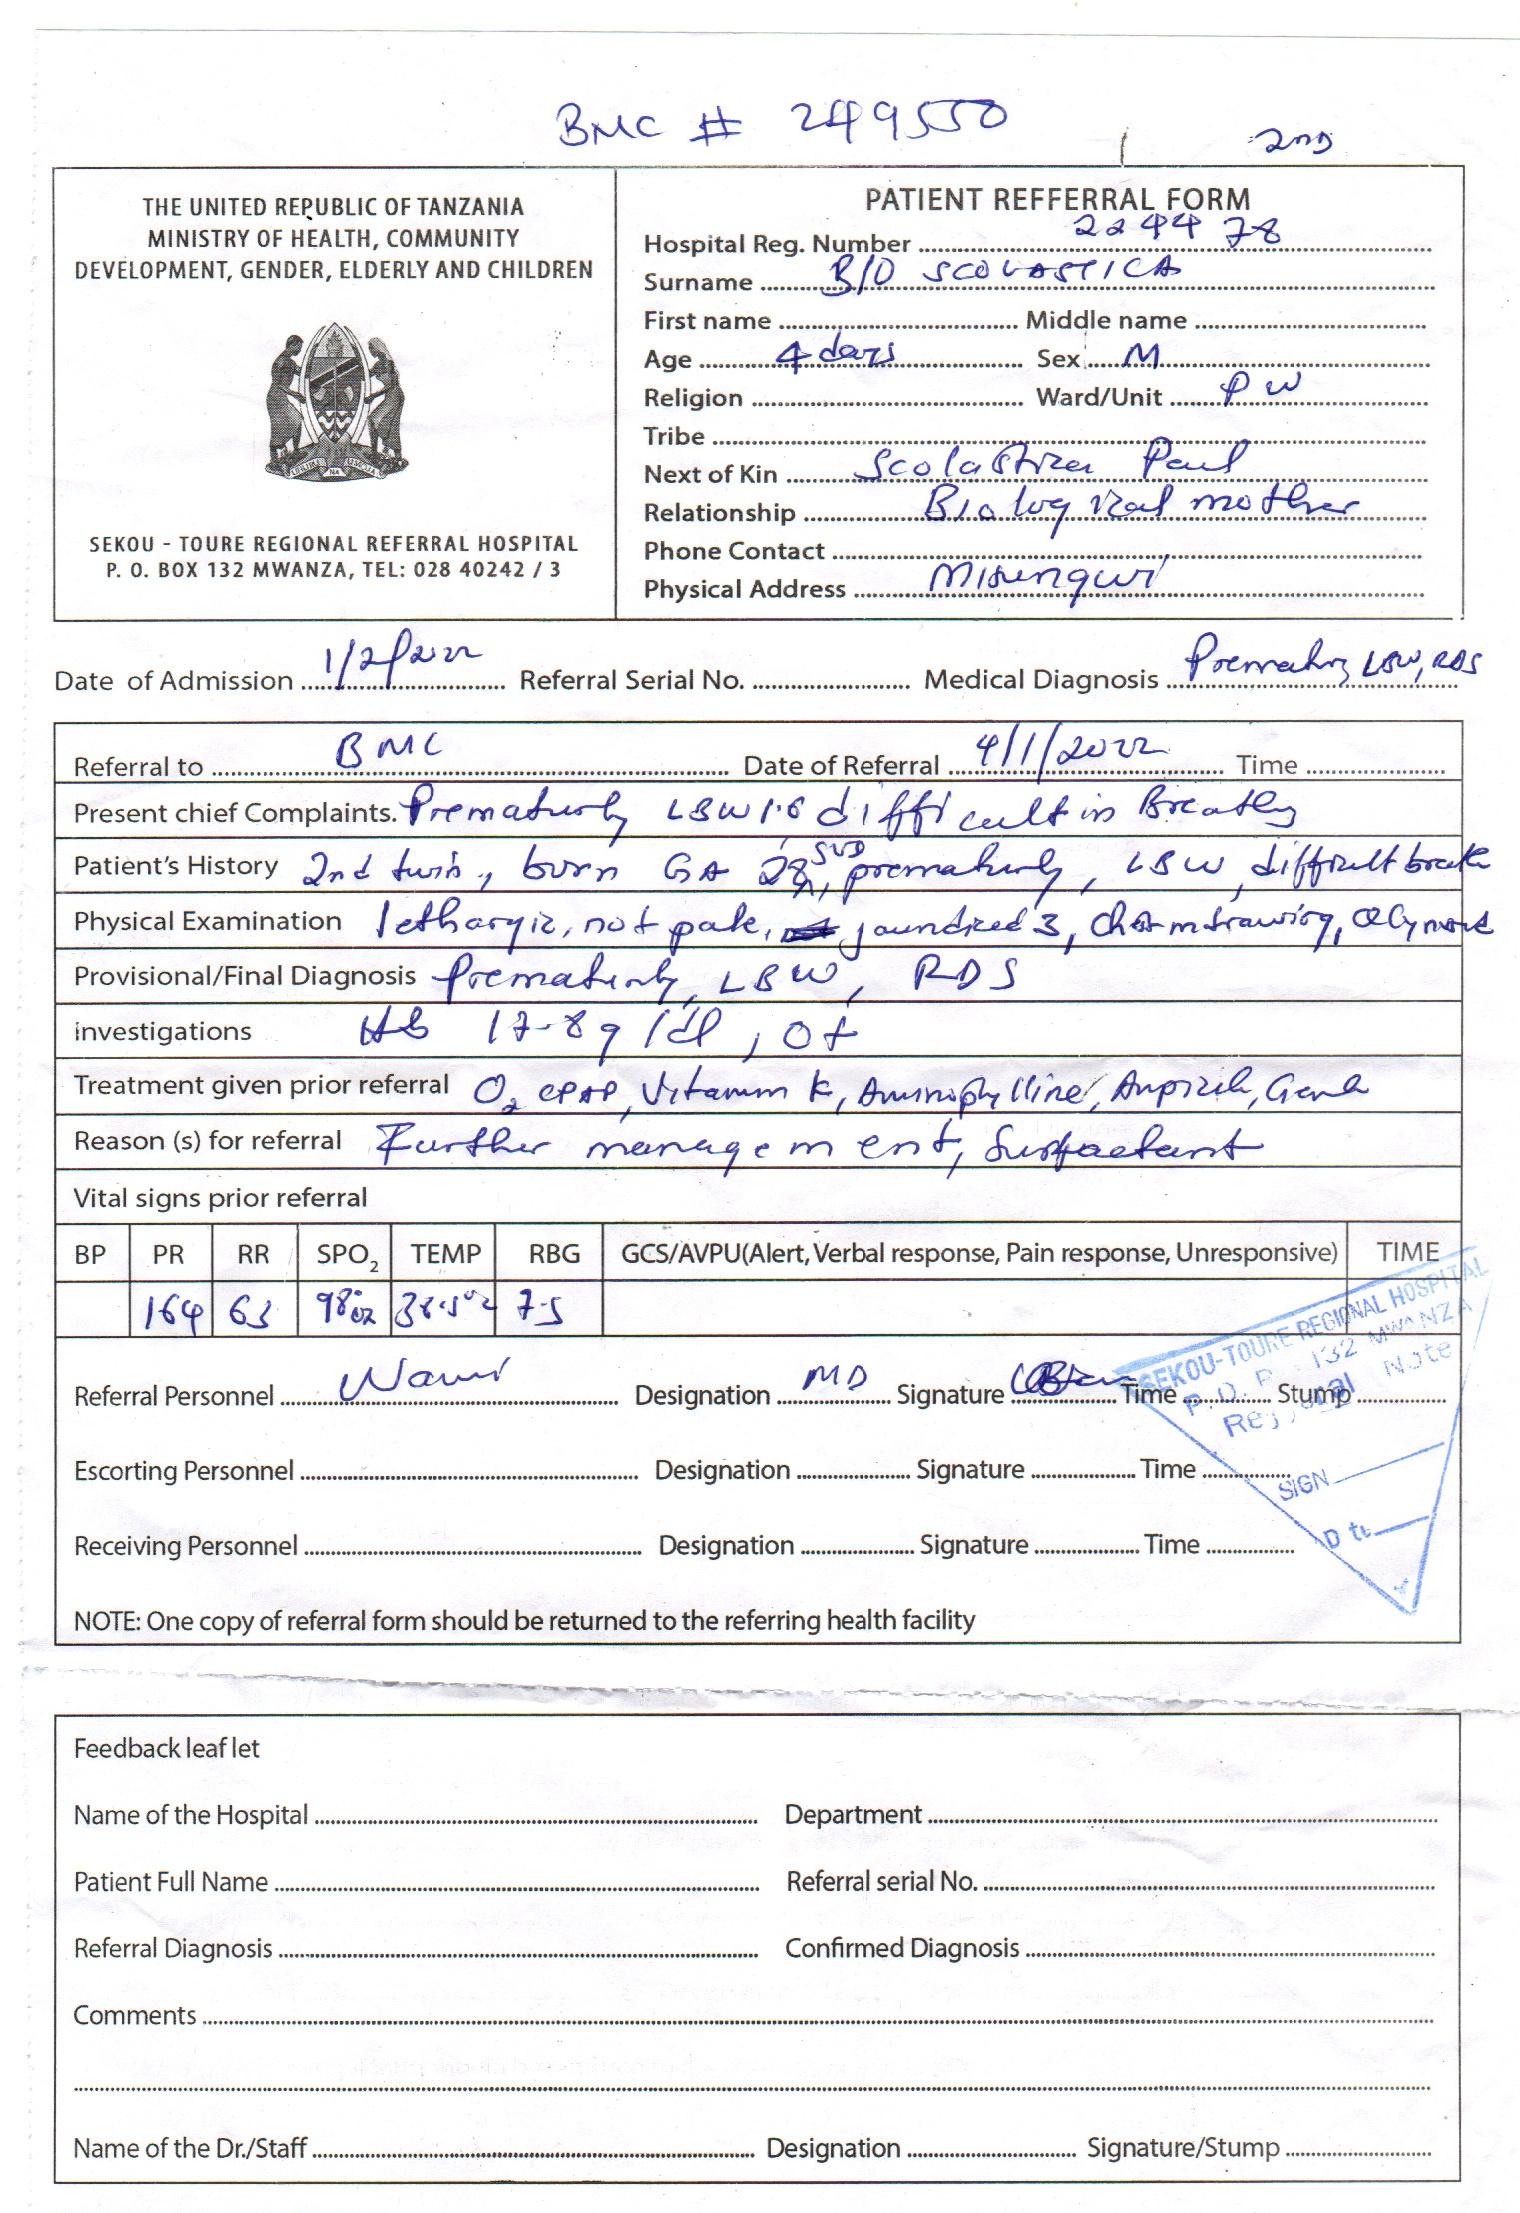 BMC # 249550
2nd
THE UNITED REPUBLIC OF TANZANIA
MINISTRY OF HEALTH, COMMUNITY
DEVELOPMENT, GENDER, ELDERLY AND CHILDREN
SEKOU - TOURE REGIONAL REFERRAL HOSPITAL
P. O. BOX 132 MWANZA, TEL: 028 40242 / 3
PATIENT REFFERRAL FORM
Hospital Reg. Number 224478
Surname B/O SCOLASTICA
First name Middle name
Age 4 days Sex M
Religion Ward/Unit PW
Tribe
Next of Kin Scolastica Paul
Relationship Biological mother
Phone Contact
Physical Address Misungwi
Date of Admission 1/2/2022 Referral Serial No. Medical Diagnosis Prematurity, LBW, RDS
Referral to BMC Date of Referral 4/1/2022 Time
Present chief Complaints. Prematurity LBW 1.6 difficult in Breathy
Patient's History 2nd twin, born GA 28 SVD, prematurity, LBW, difficult breath
Physical Examination lethargic, not pale, jaundiced 3,
Provisional/Final Diagnosis Prematurity, LBW, RDS
investigations Hb 17.8g/dl, O+
Treatment given prior referral O2 CPAP, Vitamin K, Aminophylline, Ampicil, Genta
Reason (s) for referral Further management, Surfactant
Vital signs prior referral
BP PR RR SPO2 TEMP RBG GCS/AVPU(Alert, Verbal response, Pain response, Unresponsive) TIME
164 63 98 7.5
Referral Personnel Designation MD Signature Time Stump
Escorting Personnel Designation Signature Time
Receiving Personnel Designation Signature Time
SEKOU-TOURE REGIONAL HOSPITAL
132 MWANZA
SIGN
NOTE: One copy of referral form should be returned to the referring health facility
Feedback leaf let
Name of the Hospital Department
Patient Full Name Referral serial No.
Referral Diagnosis Confirmed Diagnosis
Comments
Name of the Dr./Staff Designation Signature/Stump